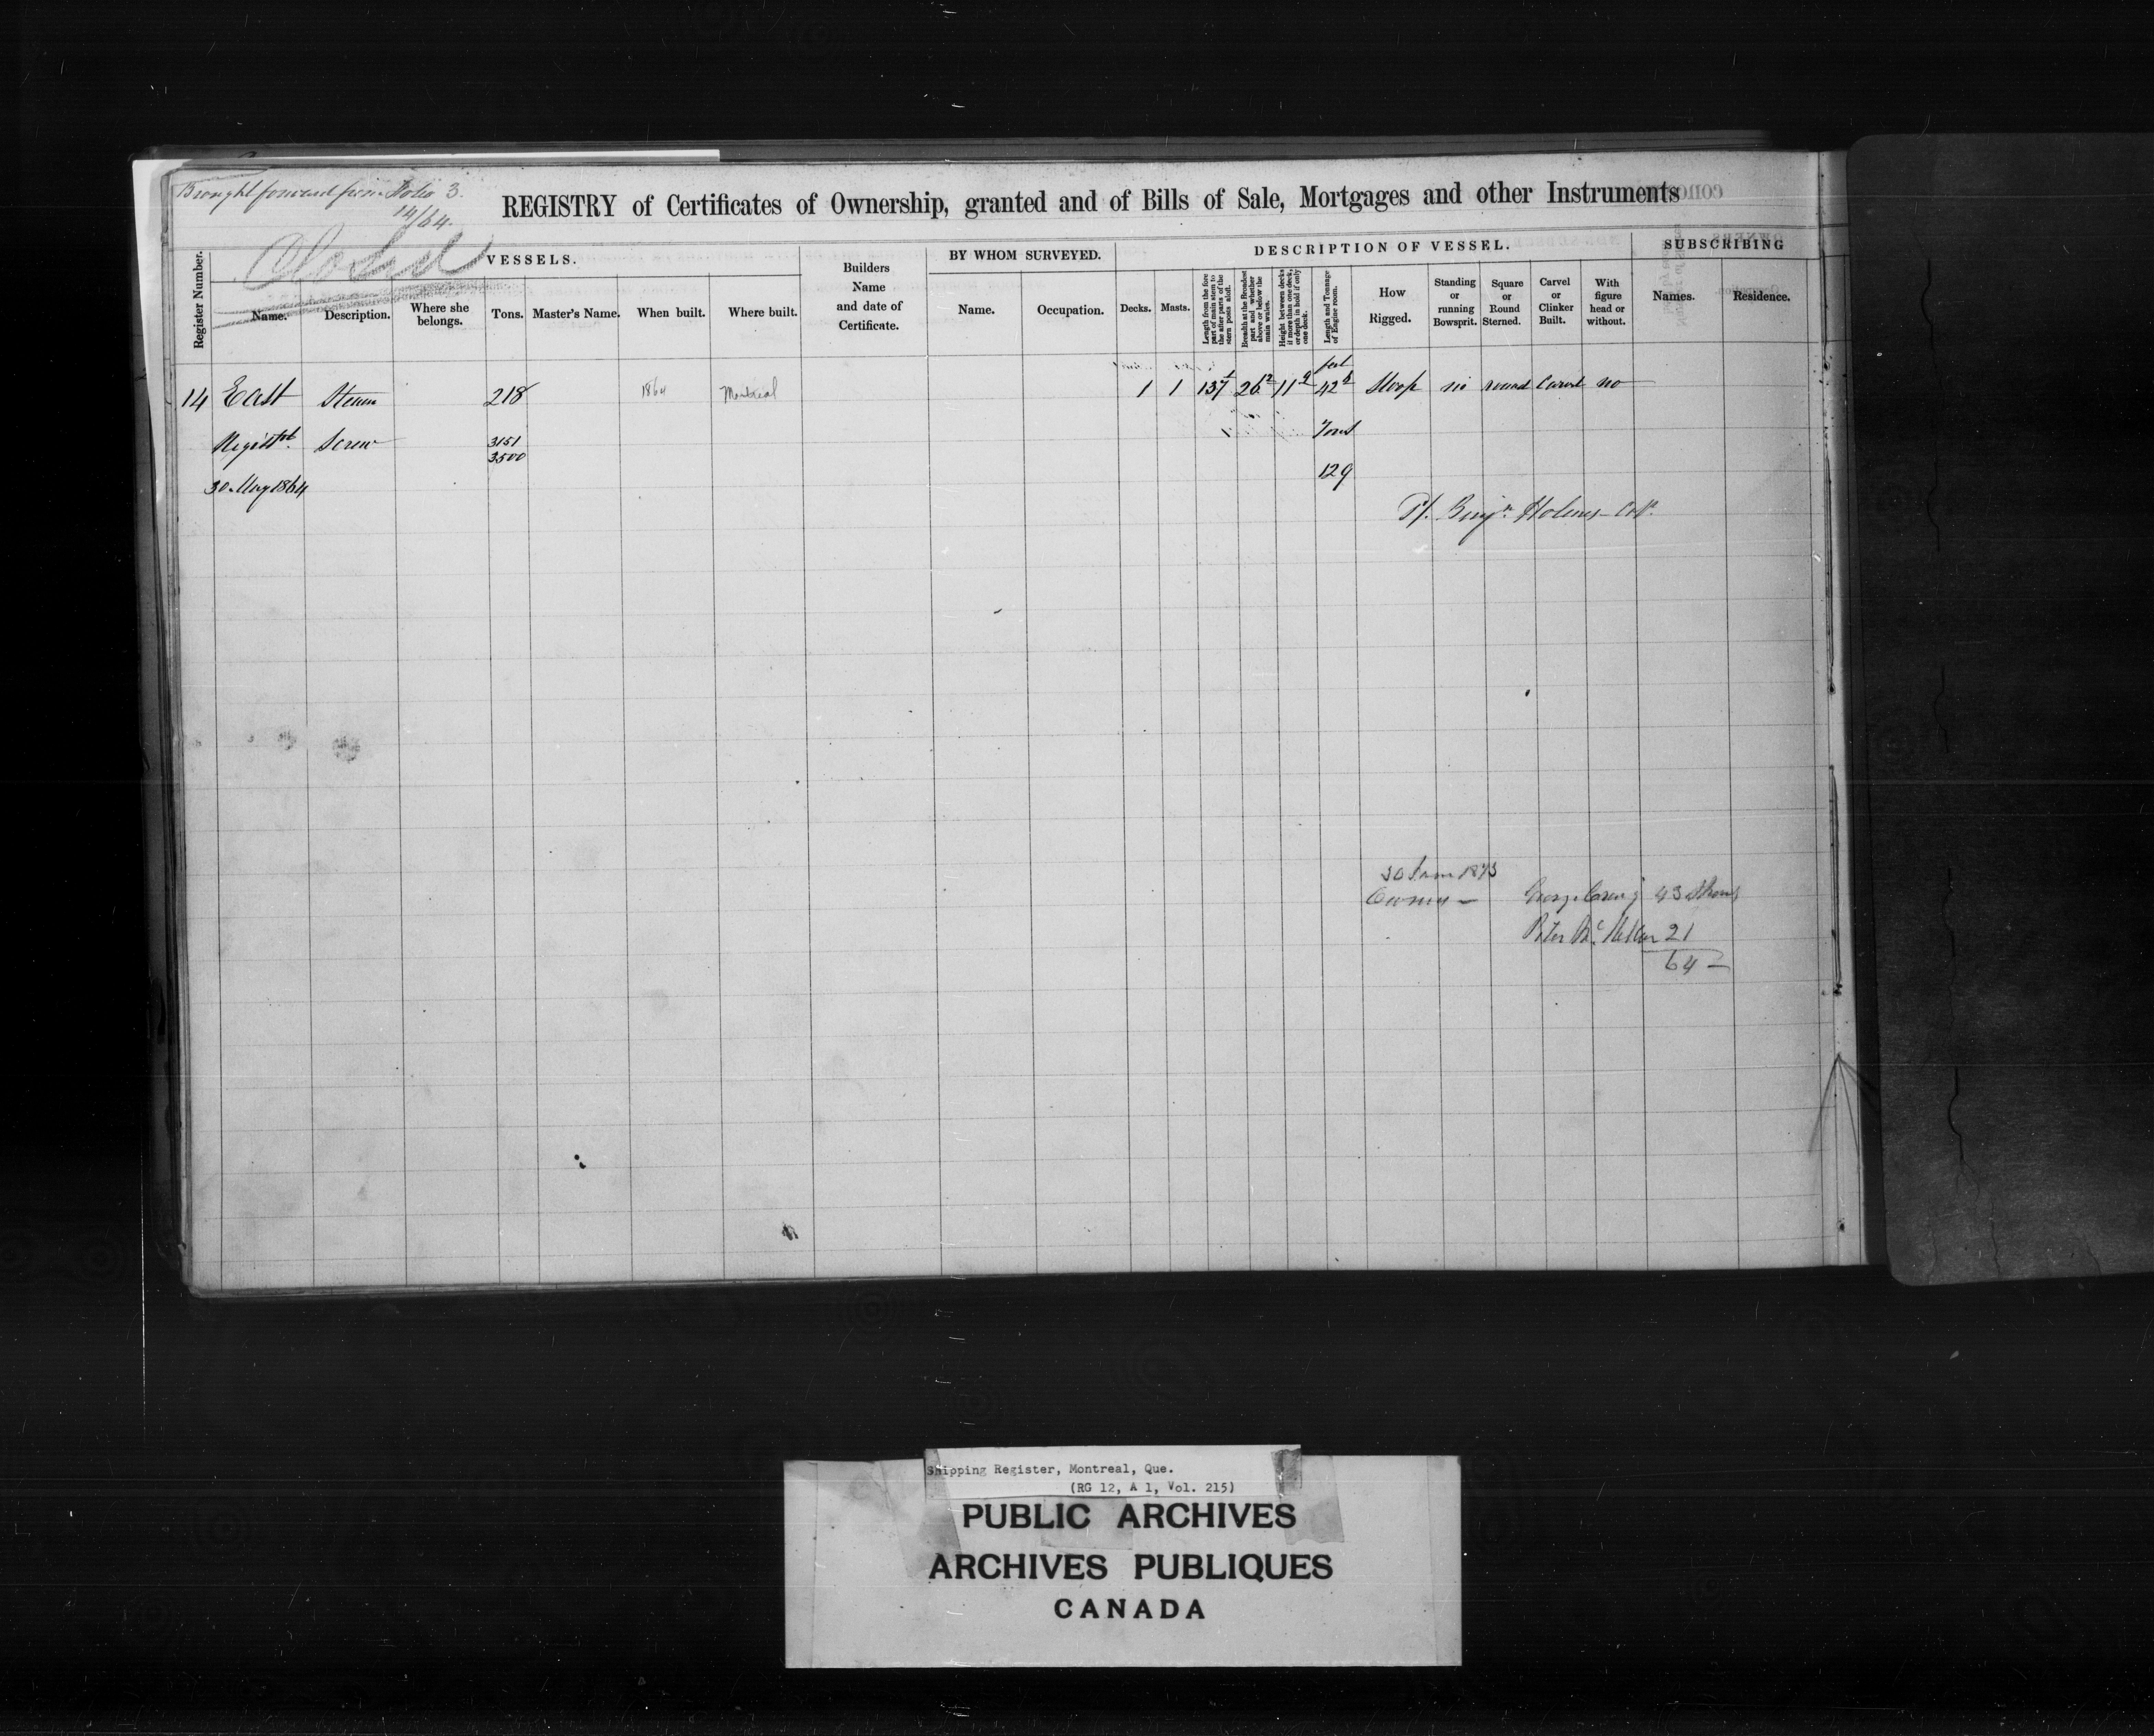 Brought forward from Folio 3.
14/64.
REGISTRY of Certificates of Ownership, granted and of Bills of Sale, Mortgages and other Instruments
Closed
VESSELS.
BY WHOM SURVEYED.
DESCRIPTION OF VESSEL.
SUBSCRIBING
Register Number.
Name.
Description.
Where she belongs.
Tons.
Master's Name.
When built.
Where built.
Builders Name and date of Certificate.
Name.
Occupation.
Decks.
Masts.
Length from the fore part of main stem to the after parts of the stern posts aloft.
Breadth at the Broadest part and whether above or below the main wales.
Height between decks if more than one deck, or depth in hold if only one deck.
Length and Tonnage of Engine room.
How Rigged.
Standing or running Bowsprit.
Square or Round Sterned.
Carvel or Clinker Built.
With figure head or without.
Names.
Residence.
feet
14 East Steam 218 1864 Montreal 1 1 137 26 11 42 Sloop no round Carvel no
Screw 3151 Tons
3500
30 May 1864 129
Benjn. Holmes
1873
Owners — George 43 Shares
Peter 21
64
Shipping Register, Montreal, Que.
(RG 12, A 1, Vol. 215)
PUBLIC ARCHIVES
ARCHIVES PUBLIQUES
CANADA